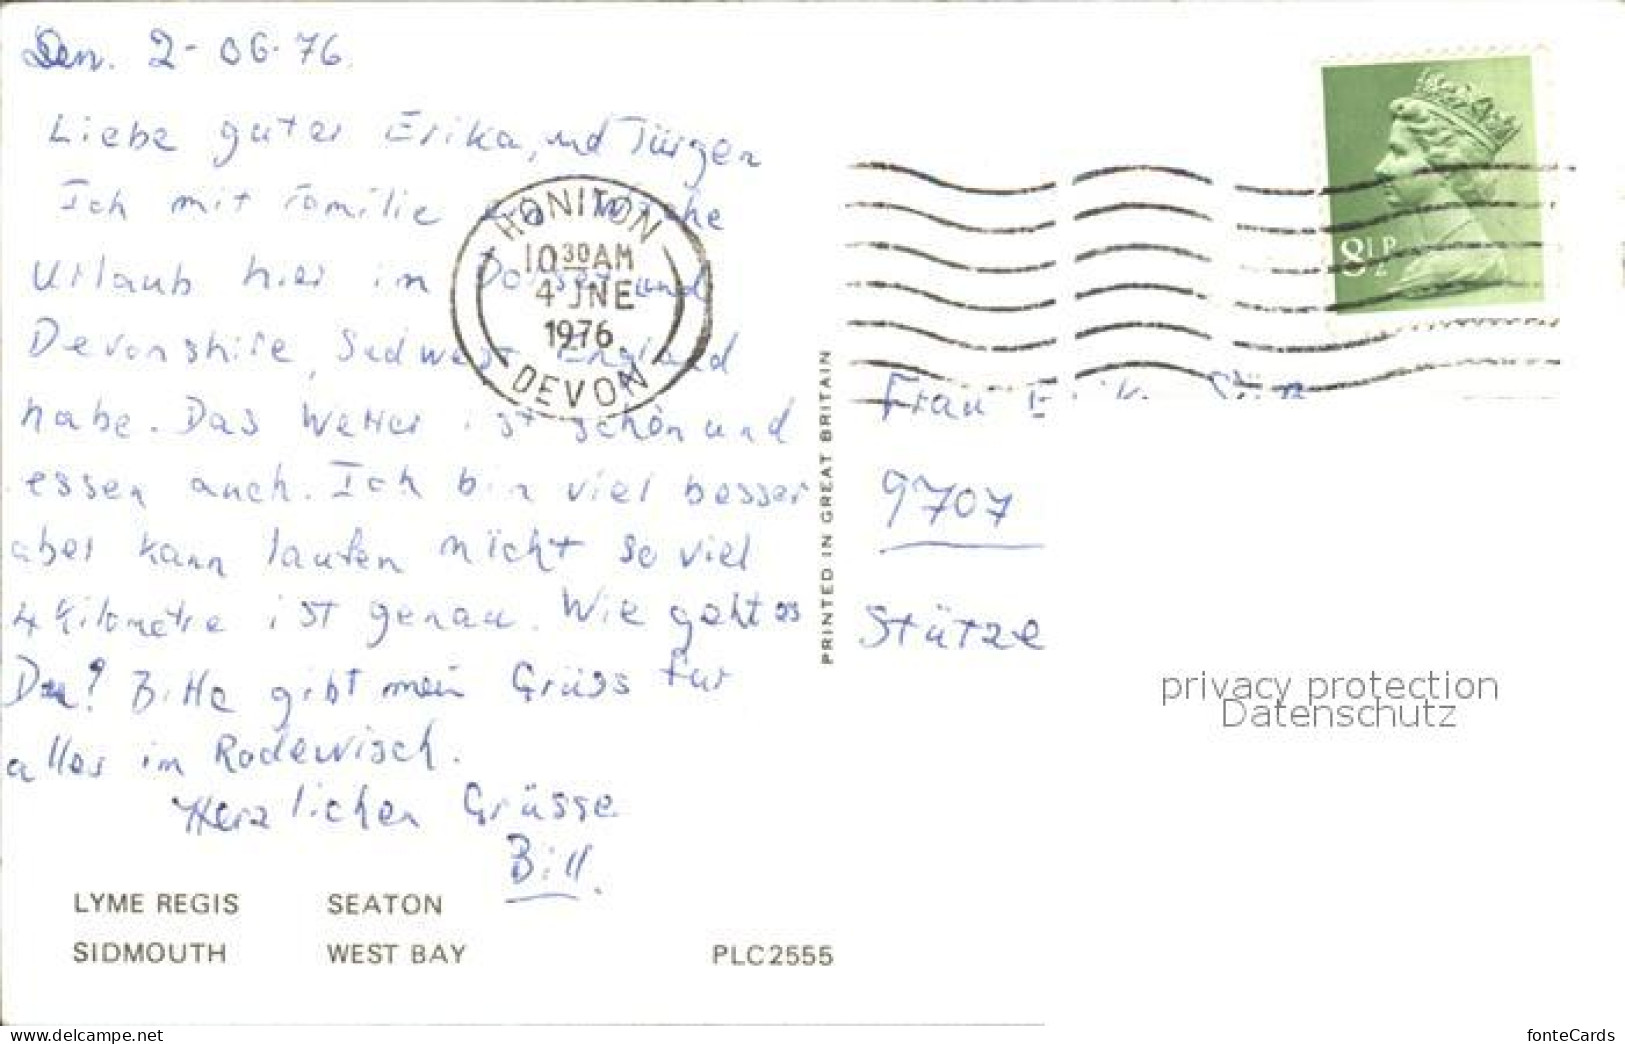 Den. 2-06-76.
Liebe guter Erika, und Jürgen
Ich mit Familie Woche
Urlaub hier im Dorset und
Devonshire, Sudwest England
habe. Das Wetter ist schön und
essen auch. Ich bin viel besser
aber kann laufen nicht so viel
4 Kilometre ist genau. Wie geht es
Du? Bitte gibt mein Grüss fur
alles im Rodewisch.
Herzlichen Grüsse
Bill.
HONITON
10 30 AM
4 JNE
1976
DEVON
8½P
PRINTED IN GREAT BRITAIN
Frau
9707
Stütze
privacy protection
Datenschutz
LYME REGIS SEATON
SIDMOUTH WEST BAY PLC2555
www.delcampe.net
fonteCards